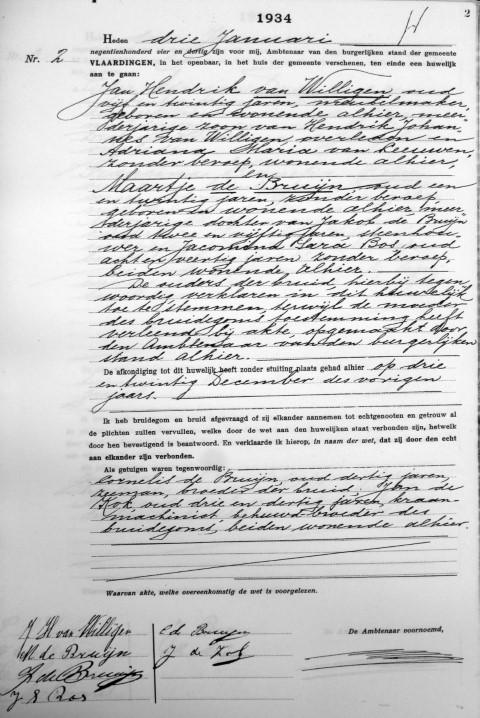 1934
2
Heden drie Januari
Nr. 2
negentienhonderd vier en dertig zijn voor mij, Ambtenaar van den burgerlijken stand der gemeente
VLAARDINGEN, in het openbaar, in het huis der gemeente verschenen, ten einde een huwelijk
aan te gaan:
Jan Hendrik van Willigen, oud
vijf en twintig jaren, meubelmaker,
geboren en wonende alhier, meer-
derjarige zoon van Hendrik Johan-
nes van Willigen, overleden en
Adriana Maria van Leeuwen,
zonder beroep, wonende alhier,
en
Maartje de Bruijn, oud een
en twintig jaren, zonder beroep,
geboren en wonende alhier, meer-
derjarige dochter van Jakob de Bruijn
oud twee en vijftig jaren, steenhou-
wer en Jacomina Sara Bos, oud
acht en veertig jaren zonder beroep,
beiden wonende alhier.
De ouders der bruid, hierbij tegen-
woordig verklaren in dit huwelijk
toe te stemmen, terwijl de moeder
des bruidegoms toestemming heeft
verleend bij akte, opgemaakt door
den Ambtenaar van den burgerlijken
stand alhier.
De afkondiging tot dit huwelijk heeft zonder stuiting plaats gehad alhier op drie
en twintig December des vorigen
jaars.
Ik heb bruidegom en bruid afgevraagd of zij elkander aannemen tot echtgenooten en getrouw al
de plichten zullen vervullen, welke door de wet aan den huwelijken staat verbonden zijn, hetwelk
door hen bevestigend is beantwoord. En verklaarde ik hierop, in naam der wet, dat zij door den echt
aan elkander zijn verbonden.
Als getuigen waren tegenwoordig:
Cornelis de Bruijn, oud dertig jaren,
zeeman, broeder der bruid, Jan de
Kok, oud drie en dertig jaren, kraan-
machinist, behuwd broeder des
bruidegoms, beiden wonende alhier.
Waarvan akte, welke overeenkomstig de wet is voorgelezen.
J H van Willigen
M de Bruijn
J de Bruijn
J S Bos
C d Bruijn
J de Kok
De Ambtenaar voornoemd,